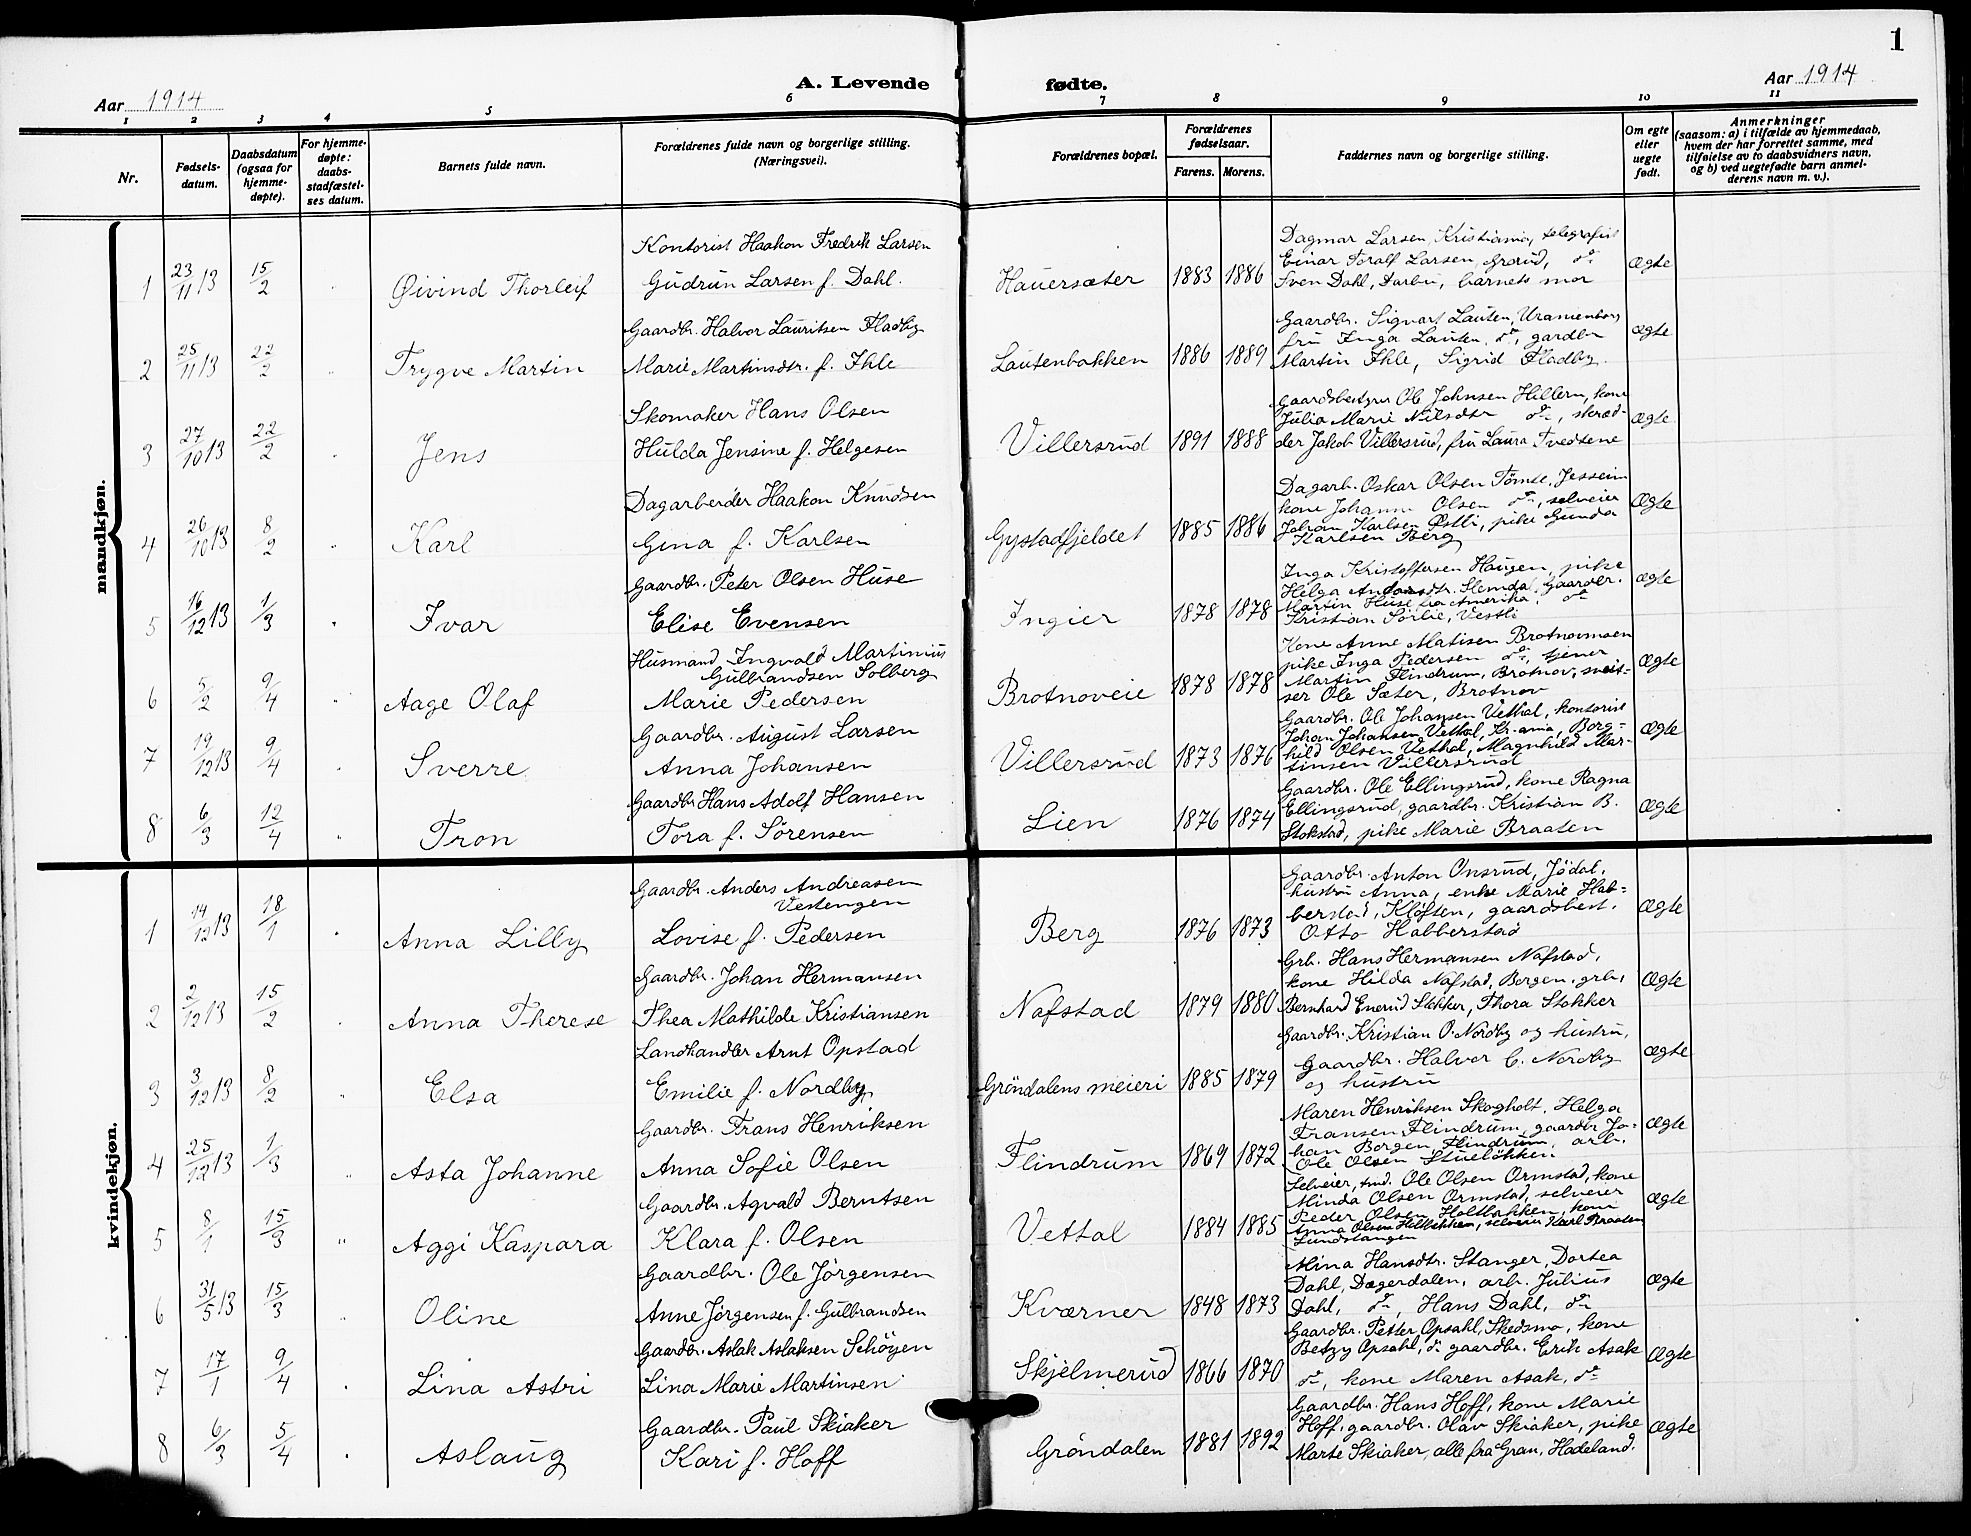 1
Aar 1914
A. Levende fødte.
Aar 1914
1 2 3 4 5 6 7 8 9 10 11
Nr.
Fødsels-
datum.
Daabsdatum
(ogsaa for
hjemme-
døpte).
For hjemme-
døpte:
daabs-
stadfæstel-
ses datum.
Barnets fulde navn.
Forældrenes fulde navn og borgerlige stilling.
(Næringsvei).
Forældrenes bopæl.
Forældrenes
fødselsaar.
Farens. Morens.
Faddernes navn og borgerlige stilling.
Om egte
eller
uegte
født.
Anmerkninger
(saasom: a) i tilfælde av hjemmedaab,
hvem der har forrettet samme, med
tilføielse av to daabsvidners navn,
og b) ved uegtefødte barn anmel-
derens navn m. v.).
mandkjøn.
Kontorist Haakon Fredrik Larsen
1 23/11 13 15/2 Øivind Thorleif Gudrun Larsen f. Dahl. Hauersæter 1883 1886
Dagmar Larsen, Kristiania, telegrafist
Einar Toralf Larsen, Grorud, do
Sven Dahl, Darbu, barnets mor
Ægte
Gaardbr. Halvor Lauritsen Fladby
2 25/11 13 22/2 Trygve Martin Marie Martinsdtr. f. Ihle Lautenbakken 1886 1889
Gaardbr. Sigvart Lauten, Uranienborg
fru Inga Lauten, do, gardbr
Martin Ihle, Sigrid Fladby.
Ægte
Skomaker Hans Olsen
3 27/10 13 22/2 Jens Hulda Jensine f. Helgesen Villersrud 1891 1888
Gaardsbestyrer Ole Johnsen Hillern, kone
Julia Marie Nilsdtr do, skræd-
der Jakob Villersrud, fru Laura Tvedtene
Ægte
Dagarbeider Haakon Knudsen
4 26/10 13 8/2 Karl Gina f. Karlsen Gystadfjeldet 1885 1886
Dagarb. Oskar Olsen Tømte, Jesseim
kone Johanne Olsen do, selveier
Johan Karlsen Østli, pike Gunda
Karlsen Berg
Ægte
Gaardbr. Peter Olsen Huse
5 16/12 13 1/3 Ivar Elise Evensen Ingier 1878 1878
Inga Kristoffersen Haugen, pike
Helga Andersdtr. Slemdal, Gaardbr.
Martin Huse fra Amerika, do
Kristian Sørlie, Vestli
Ægte
Husmand Ingvald Martinius
Gulbrandsen Solberg
6 5/2 9/4 Aage Olaf Marie Pedersen Brotnoveie 1878 1878
Kone Anne Matisen Brotnovmoen
pike Inga Pedersen do, tjener
Martin Flindrum, Brotnov, sveit-
ser Ole Sæter, Brotnov
Ægte
Gaardbr. August Larsen
7 19/12 13 9/4 Sverre Anna Johansen Villersrud 1873 1876
Gaardbr. Ole Johansen Vethal, kontorist
Johan Johansen Vethal, Kr-ania, Borg-
hild Olsen Vethal, Magnhild Mar-
tinsen Villersrud
Ægte
Gaardbr Hans Adolf Hansen
8 6/3 12/4 Tron Tora f. Sørensen Lien 1876 1874
Gaardbr. Ole Ellingsrud, kone Ragna
Ellingsrud, gaardbr. Kristian B.
Stokstad, pike Marie Braaten
Ægte
kvindekjøn.
Gaardbr. Anders Andreasen
Vestengen
1 14/12 13 18/1 Anna Lilly Lovise f. Pedersen Berg 1876 1873
Gaardbr. Anton Onsrud, Jødal,
hustru Anna, enke Marie Hab-
berstad, Kløften, gaardsbest.
Otto Habberstad
Ægte
Gaardbr. Johan Hermansen
2 2/12 13 15/2 Anna Therese Thea Mathilde Kristiansen Nafstad 1879 1880
Grb. Hans Hermansen Nafstad,
kone Hilda Nafstad, Borgen, grb.,
Bernhard Enerud Stokker, Thora Stokker
Ægte
Landhandler Arnt Opstad
3 3/12 13 8/2 Elsa Emilie f. Nordby Grøndalens meieri 1885 1879
Gaardbr. Kristian O. Nordby og hustru,
Gaardbr. Halvor C. Nordby
og hustru
Ægte
Gaardbr. Frans Henriksen
4 25/12 13 1/3 Asta Johanne Anna Sofie Olsen Flindrum 1869 1872
Maren Henriksen Skogholt, Helga
Fransen Flindrum, gaardbr Jo-
han Borgen Flindrum, arb.
Ole Olsen Stueløkken
Ægte
Gaardbr. Agvald Berntsen
5 8/1 15/3 Aggi Kaspara Klara f. Olsen Vettal 1884 1885
Selveier, smd. Ole Olsen Ormstad, kone
Minda Olsen Ormstad, selveier
Peder Olsen Holtbakken, kone
Anna Olsen Holtbakken, selveier Karl Braaten
Lundstangen
Ægte
Gaardbr. Ole Jørgensen
6 31/5 13 15/3 Oline Anne Jørgensen f. Gulbrandsen Kværner 1848 1873
Mina Hansdtr. Stanger, Dortea
Dahl, Dægerdalen, arb. Julius
Dahl, do, Hans Dahl, do
Ægte
Gaardbr. Aslak Aslaksen Schøyen
7 17/1 9/4 Lina Astri Lina Marie Martinsen Skjelmerud 1866 1870
Gaardbr. Petter Opsahl, Skedsmo, kone
Betzy Opsahl, do gaardbr. Erik Asak
do, kone Maren Asak, do
Ægte
Gaardbr. Paul Skiaker
8 6/3 5/4 Aslaug Kari f. Hoff Grøndalen 1881 1892
Gaardbr. Hans Hoff, kone Marie
Hoff, gaardbr. Olav Skiaker, pike
Marte Skiaker, alle fra Gran, Hadeland.
Ægte